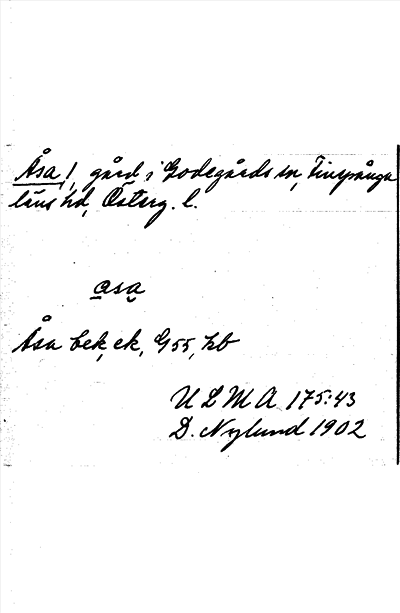 Åsa 1, gård i Godegårds sn, Finspånga
läns hd, Österg. l.
asa
Åsa bek, ek, G 55, hb
ULMA 175:43
D. Nylund 1902